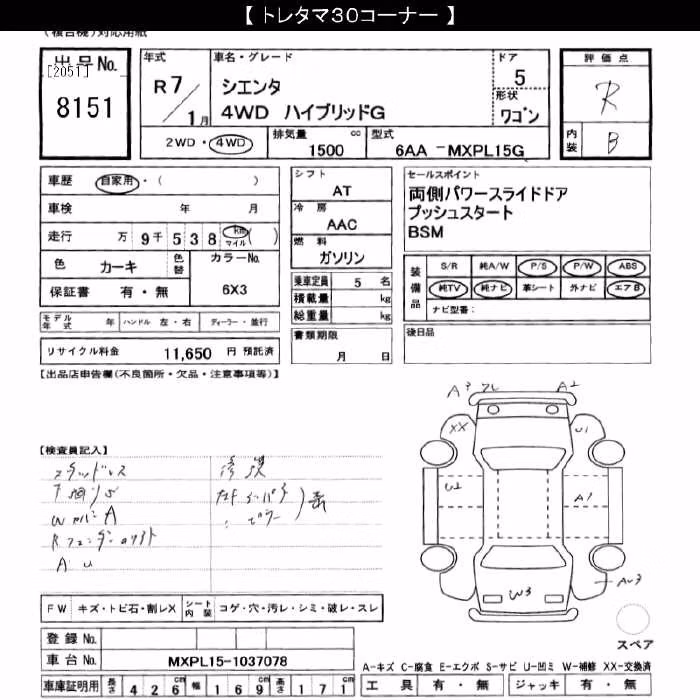 【 トレタマ30コーナー 】
(複合機)対応用紙
出品No.
[2051]
8151
年式
R 7 / 1月
車名・グレード
シエンタ
4WD ハイブリッドG
ドア
5
形状
ワゴン
2WD・4WD
排気量 cc
1500
型式
6AA -MXPL15G
評価点
R
内装
B
車歴 自家用・( )
車検 年 月
走行 万 9千 5 3 8 km マイル ( )
色 カーキ 色替
カラーNo.
6X3
保証書 有・無
シフト
AT
冷房
AAC
燃料
ガソリン
乗車定員 5 名
積載量 kg
総重量 kg
セールスポイント
両側パワースライドドア
プッシュスタート
BSM
装備品
S/R 純A/W P/S P/W ABS
純TV 純ナビ 革シート 外ナビ エアB
ナビ型番:
モデル年式 年 ハンドル 左・右 ディーラー・並行
リサイクル料金 11,650 円 預託済
書類期限
月 日
後日品
【出品店申告欄(不良箇所・欠品・注意事項等)】
【検査員記入】
スタッドレス
下回りS
W A
Rフェンダー
A U
修復
ピラー
A3
A2
XX
U1
U2
A1
W3
AU3
スペア
FW キズ・トビ石・割レX
シート内装 コゲ・穴・汚レ・シミ・破レ・スレ
登録No.
車台No. MXPL15-1037078
車庫証明用 長さ 426cm 幅 169cm 高さ 171cm
A-キズ C-腐食 E-エクボ S-サビ U-凹ミ W-補修 XX-交換済
工具 有・無 ジャッキ 有・無